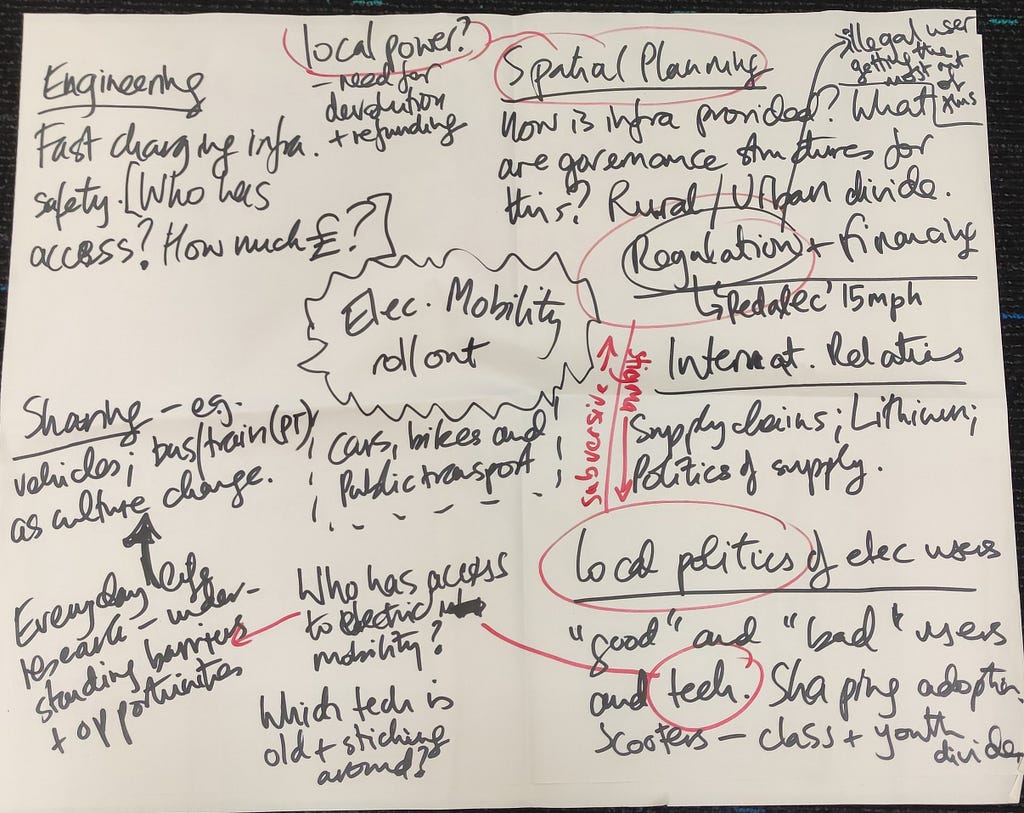 local power?
- need for
devolution
+ refunding
Engineering
Fast charging infra.
safety. [Who has
access? How much £?]
Spatial Planning
illegal user
getting the
most out
of
How is infra provided? What
are governance structures for
this? Rural/Urban divide.
Regulation + financing
↳ 'Pedalec' 15mph
Elec. Mobility
roll out
Cars, bikes and
Public transport
Internat. Relations
Supply chains; Lithium;
Politics of supply.
stigma
subversive
Sharing - eg.
vehicles; bus/train (PT)
as culture change.
Everyday life
research - under-
standing barriers
+ opportunities
Who has access
to electric
mobility?
Which tech is
old + sticking
around?
Local politics of elec users
"good" and "bad" users
and tech. Shaping adoption
Scooters - class + youth
divide